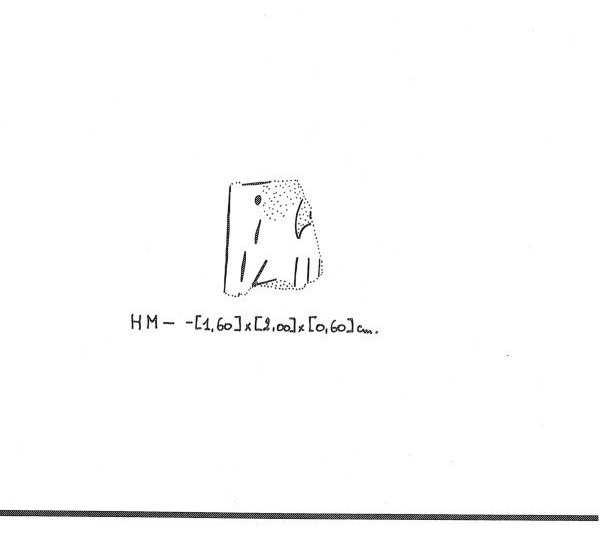 HM- -[1,60]x[2,00]x[0,60]cm.